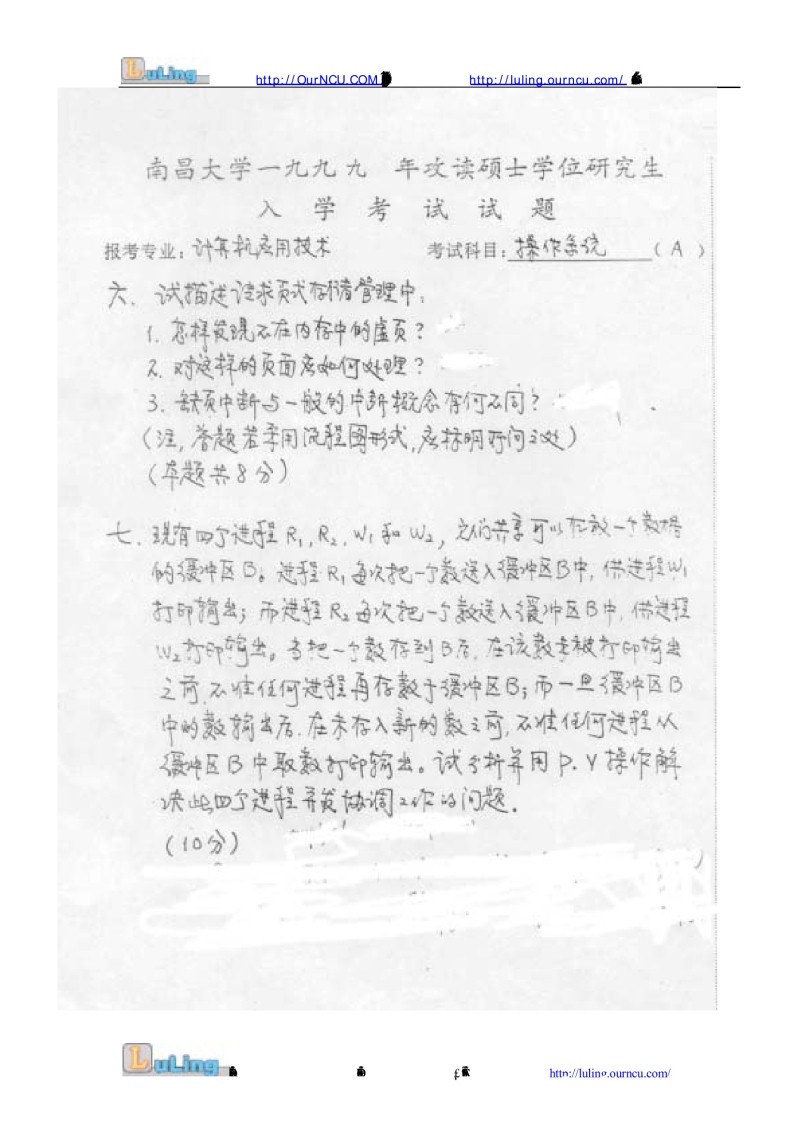 LuLing http://OurNCU.COM http://luling.ourncu.com/
南昌大学一九九九 年攻读硕士学位研究生
入 学 考 试 试 题
报考专业:计算机应用技术 考试科目:操作系统 (A)
六、试描述请求页式存储管理中:
1. 怎样发现不在内存中的虚页?
2. 对这样的页面应如何处理?
3. 缺页中断与一般的中断概念有何不同?
(注,答题若采用流程图形式,应标明所问之处)
(本题共8分)
七、现有四个进程R₁,R₂,W₁和W₂,它们共享可以存放一个数据
的缓冲区B。进程R₁每次把一个数送入缓冲区B中,供进程W₁
打印输出;而进程R₂每次把一个数送入缓冲区B中,供进程
W₂打印输出。当把一个数存到B后,在该数未被打印输出
之前,不准任何进程再存数于缓冲区B;而一旦缓冲区B
中的数输出后,在未存入新的数之前,不准任何进程从
缓冲区B中取数打印输出。试分析并用P.V操作解
决此四个进程并发协调工作的问题.
(10分)
LuLing http://luling.ourncu.com/